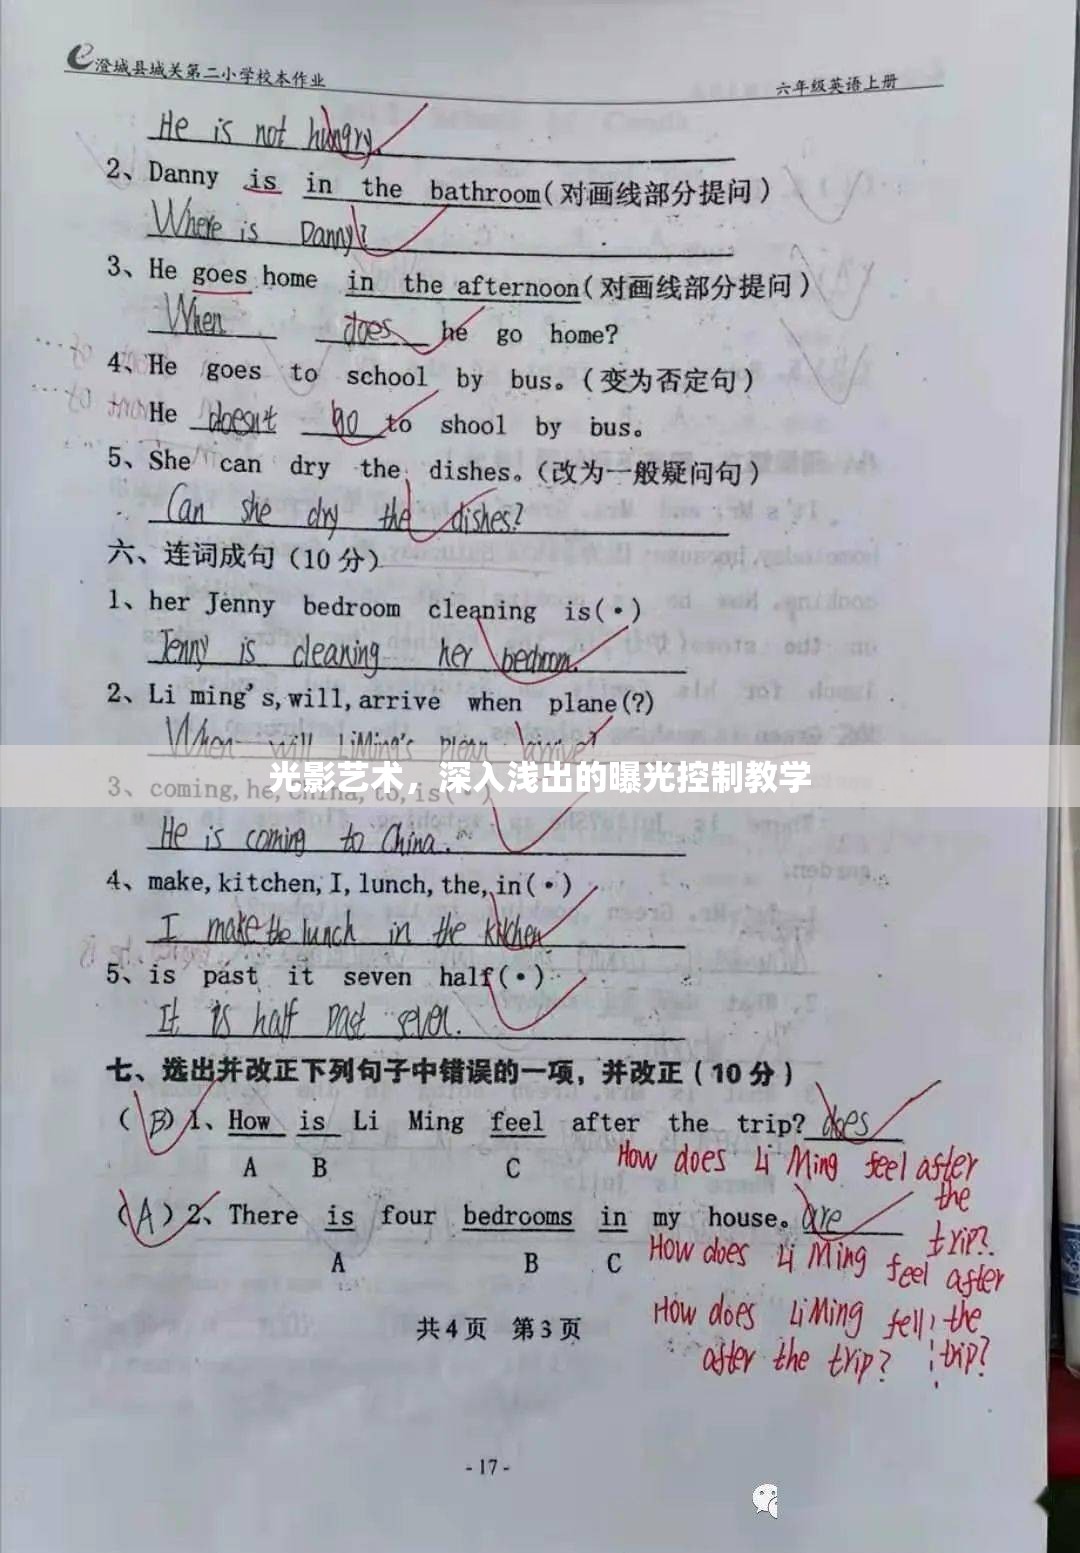 澄城县城关第二小学校本作业
六年级英语上册
He is not hungry.
2、Danny is in the bathroom(对画线部分提问)
Where is Danny?
3、He goes home in the afternoon(对画线部分提问)
When does he go home?
4、He goes to school by bus。(变为否定句)
He doesn't go to shool by bus。
5、She can dry the dishes。(改为一般疑问句)
Can she dry the dishes?
六、连词成句(10分)
1、her Jenny bedroom cleaning is(·)
Jenny is cleaning her bedroom.
2、Li ming's,will,arrive when plane(?)
When will LiMing's plean arrive?
光影艺术，深入浅出的曝光控制教学
3、coming,he,China,to,is(·)
He is coming to China.
4、make,kitchen,I,lunch,the,in(·)
I make the lunch in the kitchen
5、is past it seven half(·)
It is half past seven.
七、选出并改正下列句子中错误的一项，并改正(10分)
(B)1、How is Li Ming feel after the trip? does
A B C
How does Li Ming feel after the trip?
(A)2、There is four bedrooms in my house。are
A B C
How does Li Ming feel after the trip?
How does LiMing fell
after the trip?
共4页 第3页
-17-